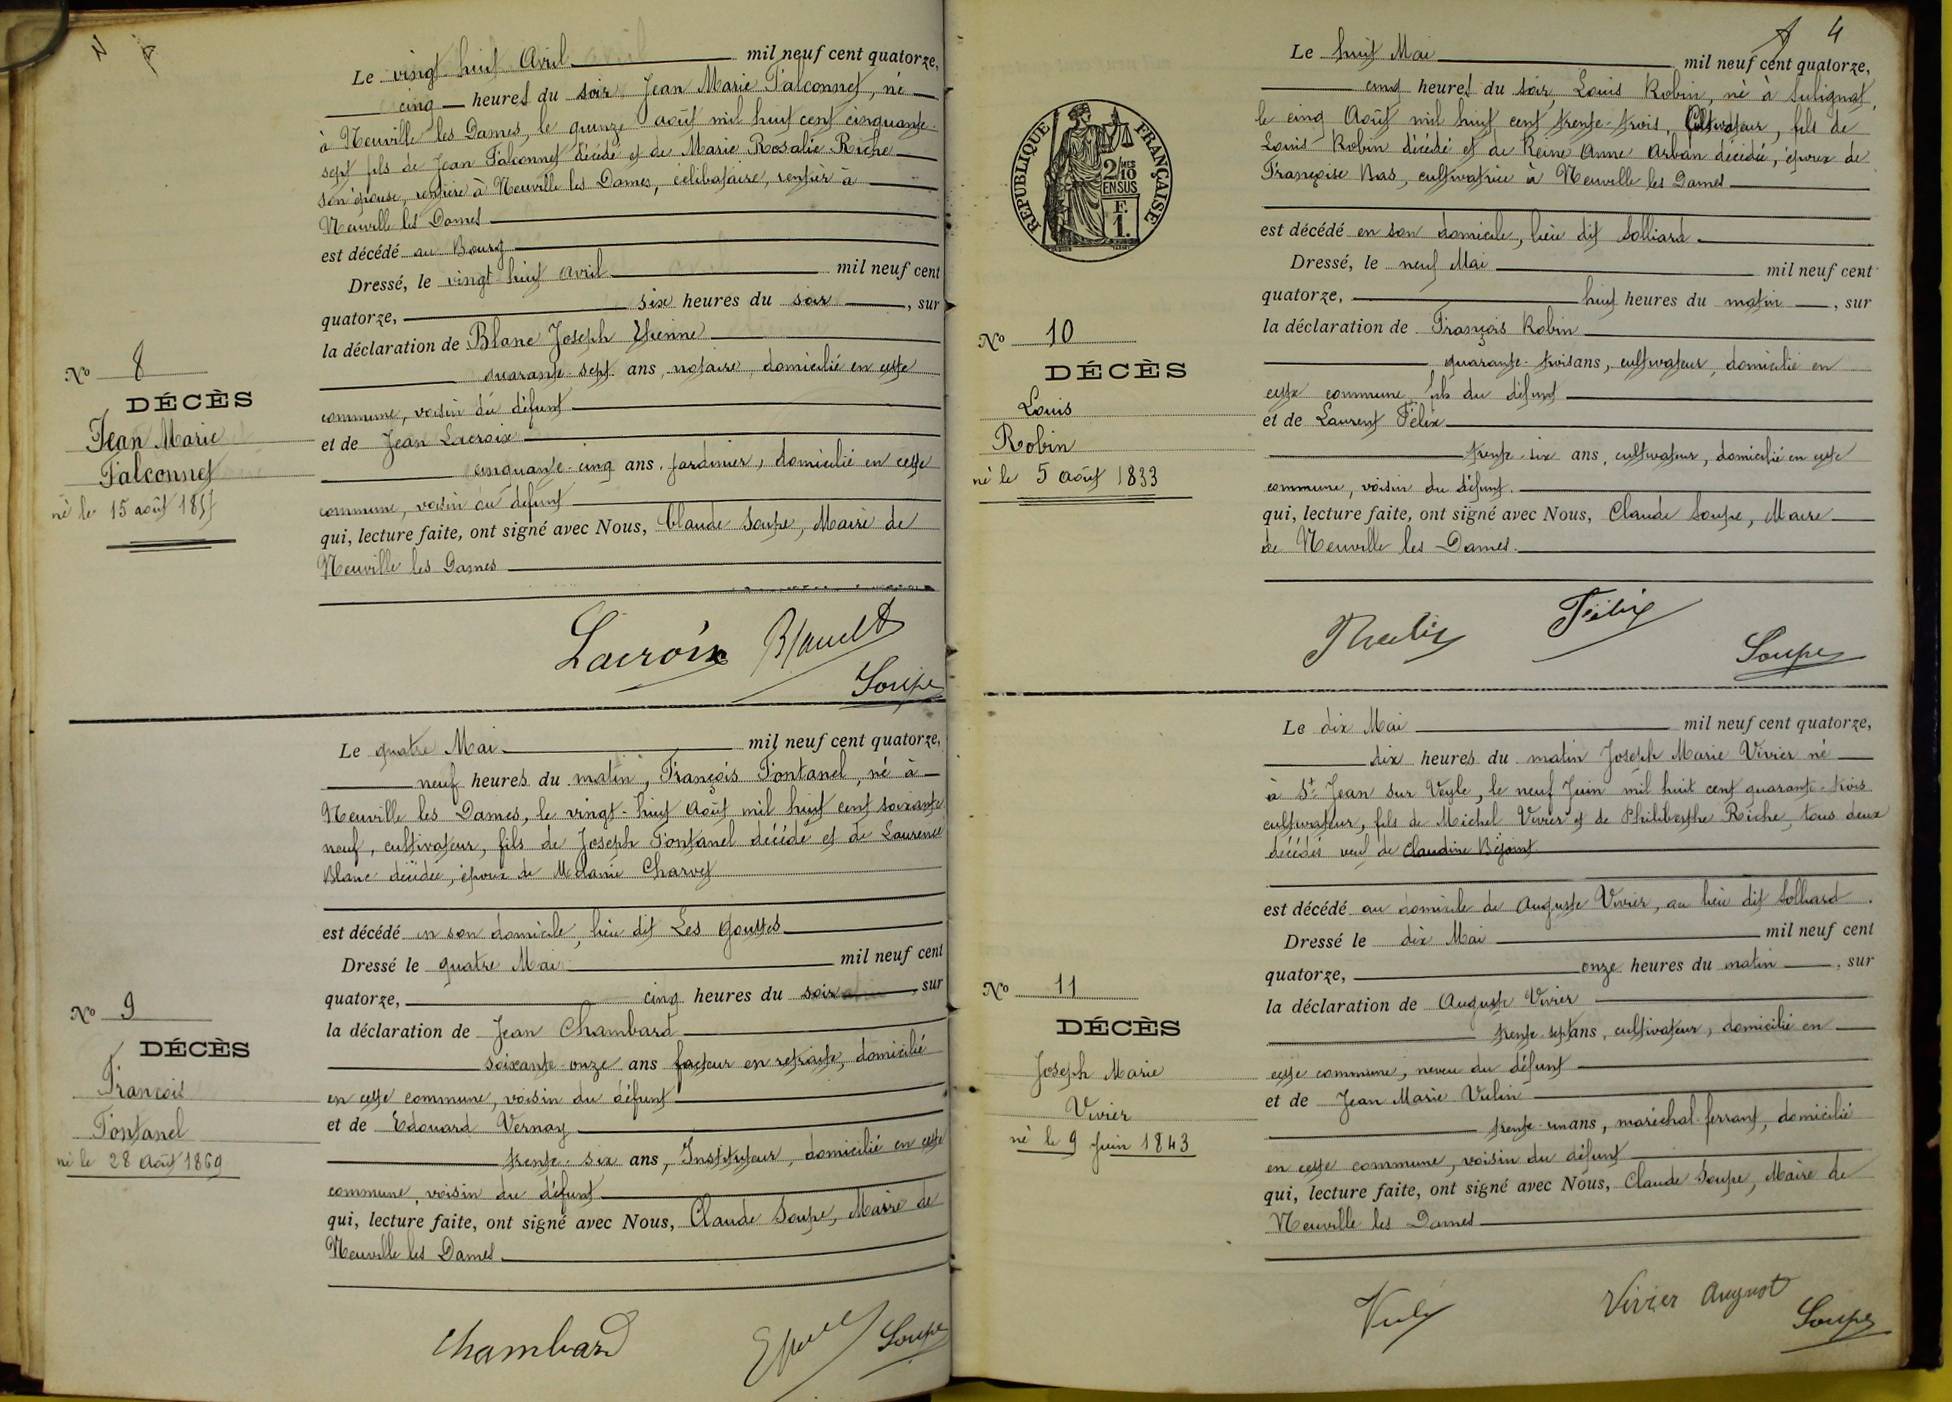 Le vingt huit Avril mil neuf cent quatorze,
cinq heures du soir Jean Marie Falconnet, né
à Neuville les Dames, le quinze août mil huit cent cinquante-
sept fils de Jean Falconnet décédé et de Marie Rosalie Riche
son épouse, rentière à Neuville les Dames, célibataire, rentier à
Neuville les Dames
est décédé au Bourg
Dressé, le vingt-huit avril mil neuf cent
quatorze, six heures du soir, sur
la déclaration de Blanc Joseph Etienne
quarante-sept ans, notaire, domicilié en cette
commune, voisin du défunt
et de Jean Lacroix
cinquante-cinq ans, jardinier, domicilié en cette
commune, voisin du défunt
qui, lecture faite, ont signé avec Nous, Claude Soupe, Maire de
Neuville les Dames
Nº 8
DÉCÈS
Jean Marie
Falconnet
né le 15 août 1857
Lacroix
Soupe
Le quatre Mai mil neuf cent quatorze,
neuf heures du matin, François Fontanel, né à
Neuville les Dames, le vingt-huit Août mil huit cent soixante
neuf, cultivateur, fils de Joseph Fontanel décédé et de Laurence
Blanc décédée, époux de Mélanie Charvet
est décédé en son domicile, lieu dit Les Gouttes
Dressé le quatre Mai mil neuf cent
quatorze, cinq heures du soir, sur
la déclaration de Jean Chambard
soixante-onze ans facteur en retraite, domicilié
en cette commune, voisin du défunt
et de Edouard Vernay
trente-six ans, Instituteur, domicilié en cette
commune, voisin du défunt
qui, lecture faite, ont signé avec Nous, Claude Soupe, Maire de
Neuville les Dames
Nº 9
DÉCÈS
François
Fontanel
né le 28 Août 1869
Chambard
Soupe
4
RÉPUBLIQUE FRANÇAISE
2/10 MES
EN SUS
F.
1.
Le huit Mai mil neuf cent quatorze,
cinq heures du soir, Louis Robin, né à Sulignat,
le cinq Août mil huit cent trente-trois, Cultivateur, fils de
Louis Robin décédé et de Reine Anne Arban décédée, époux de
Françoise Nas, cultivatrice à Neuville les Dames
est décédé en son domicile, lieu dit Solliard
Dressé, le neuf Mai mil neuf cent
quatorze, huit heures du matin, sur
la déclaration de François Robin
quarante-trois ans, cultivateur, domicilié en
cette commune, fils du défunt
et de Laurent Félix
trente-six ans, cultivateur, domicilié en cette
commune, voisin du défunt.
qui, lecture faite, ont signé avec Nous, Claude Soupe, Maire
de Neuville les Dames.
Nº 10
DÉCÈS
Louis
Robin
né le 5 août 1833
Félix
Soupe
Le dix Mai mil neuf cent quatorze,
dix heures du matin Joseph Marie Vivier né
à St Jean sur Veyle, le neuf Juin mil huit cent quarante-trois
cultivateur, fils de Michel Vivier et de Philiberthe Riche, tous deux
décédés veuf de Claudine Béjoint
est décédé au domicile de Auguste Vivier, au lieu dit Solliard.
Dressé le dix Mai mil neuf cent
quatorze, onze heures du matin, sur
la déclaration de Auguste Vivier
trente-sept ans, cultivateur, domicilié en
cette commune, neveu du défunt
et de Jean Marie Vulin
trente-un ans, maréchal-ferrant, domicilié
en cette commune, voisin du défunt
qui, lecture faite, ont signé avec Nous, Claude Soupe, Maire de
Neuville les Dames
Nº 11
DÉCÈS
Joseph Marie
Vivier
né le 9 Juin 1843
Vivier August
Soupe